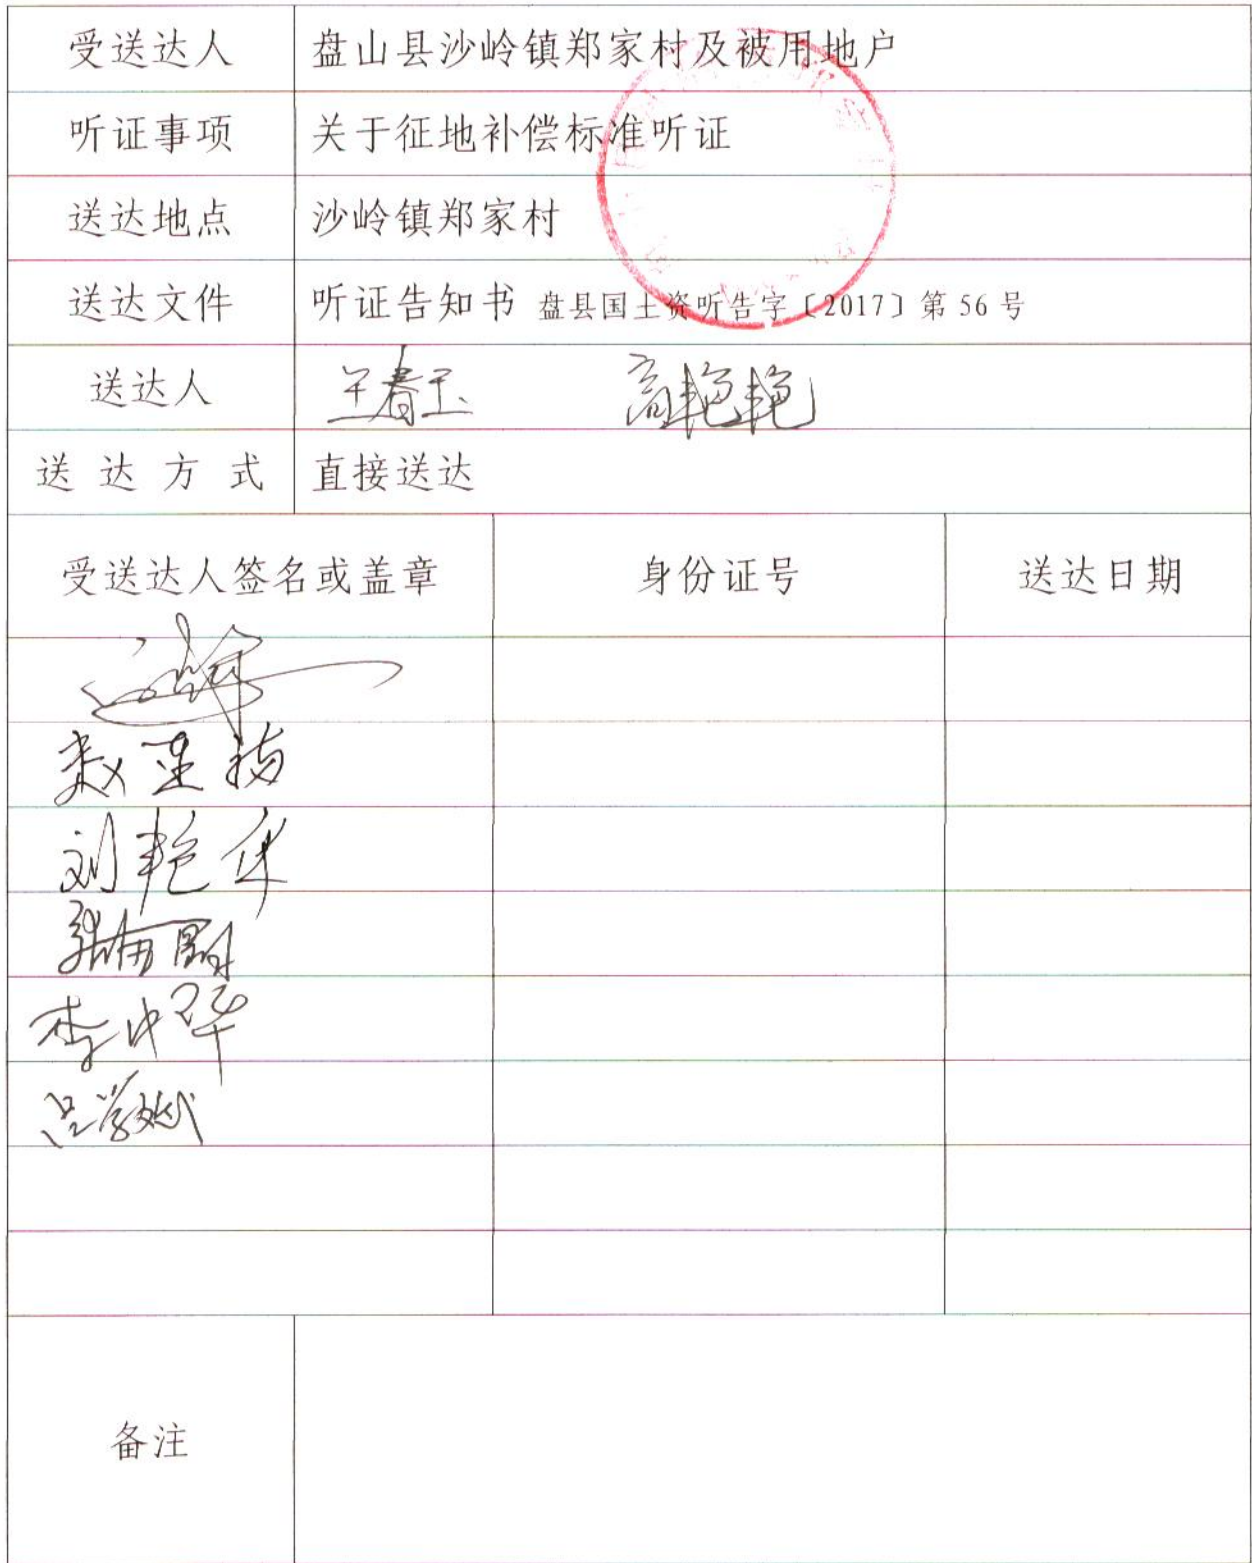 受送达人 盘山县沙岭镇郑家村及被用地户
听证事项 关于征地补偿标准听证
送达地点 沙岭镇郑家村
送达文件 听证告知书 盘县国土资听告字〔2017〕第 56 号
送达人 王春玉 高艳艳
送达方式 直接送达
受送达人签名或盖章 身份证号 送达日期
刘艳华
李中华
吕学斌
备注